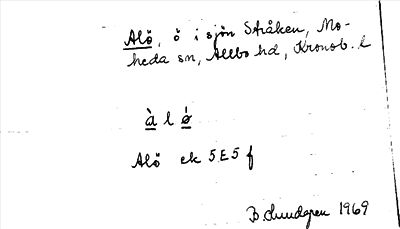 Alö, ö i sjön Stråken, Mo-
heda sn, Allbo hd, Kronob. l
à l ǿ
Alö ek 5E5 f
B. Lundgren 1969